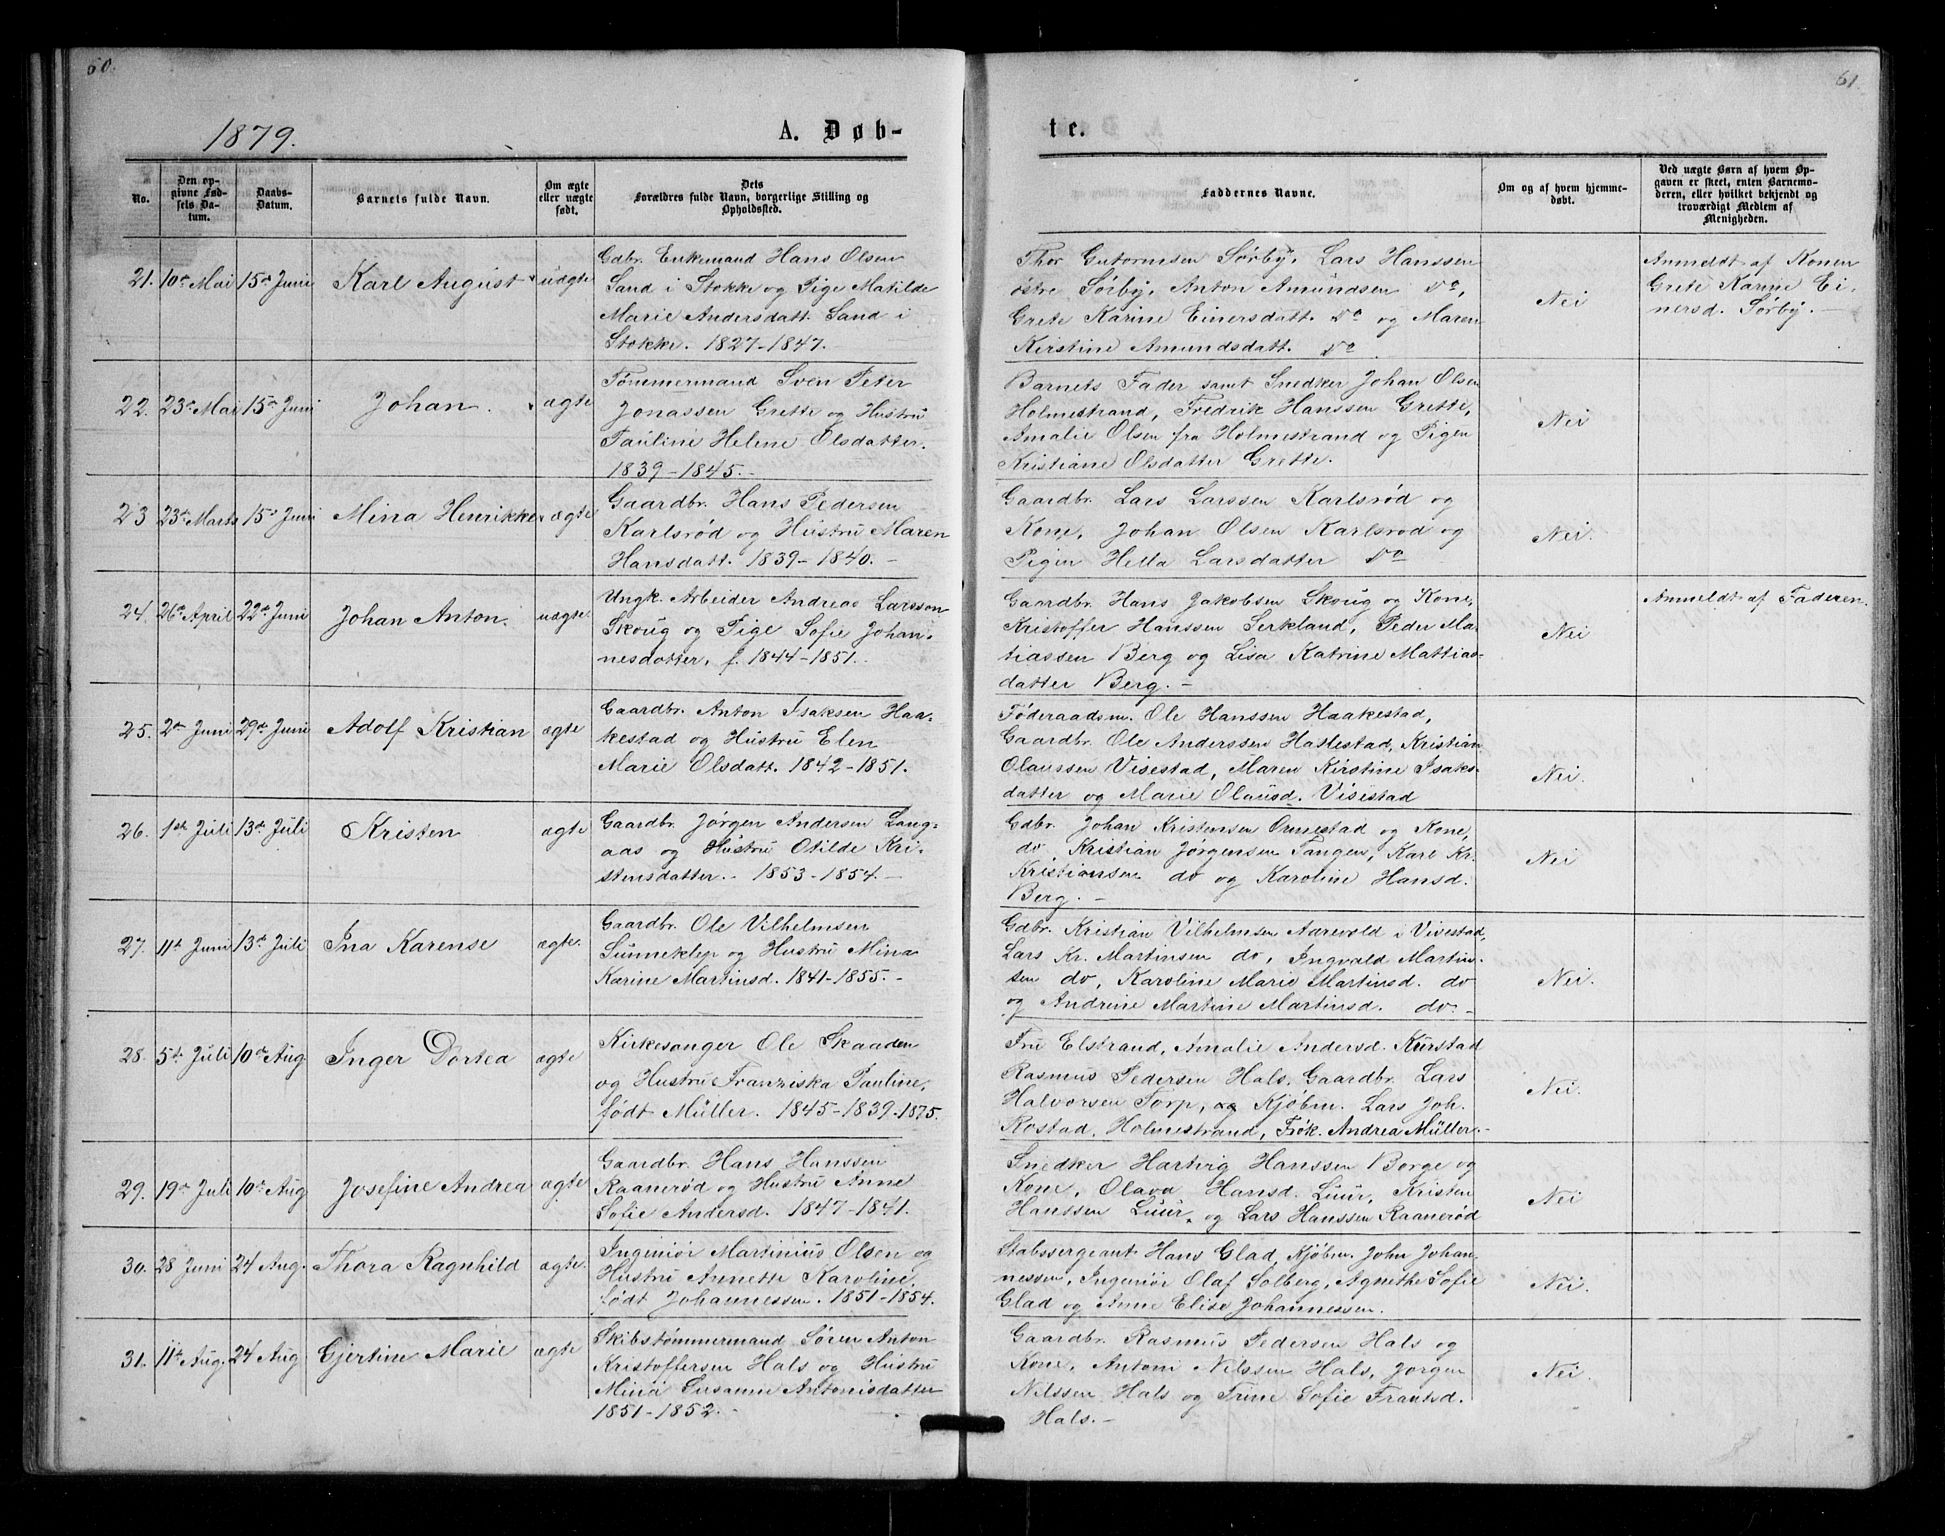 60.
61
1879.
A. Døb-
te.
No.
Den op-
givne Fød-
sels Da-
tum.
Daabs-
Datum.
Barnets fulde Navn.
Om ægte
eller uægte
født.
Dets
Forældres fulde Navn, borgerlige Stilling og
Opholdssted.
Faddernes Navne.
Om og af hvem hjemme-
døbt.
Ved uægte Børn af hvem Op-
gaven er skeet, enten Barnemo-
deren, eller hvilket bekjendt og
troværdigt Medlem af
Menigheden.
21. 10de Mai 15de Juni Karl August uægte
Gdbr. Enkemand Hans Olsen
Sand i Stokke og Pige Matilde
Marie Andersdatt. Sand i
Stokke. 1827-1847.
Thor Gutormsen Sørby, Lars Hanssen
østre Sørby, Anton Amundsen Do,
Grete Karine Einersdatt. Do og Maren
Kirstine Amundsdatt. Do
Nei
Anmeldt af Konen
Grete Karine Ei-
nersd. Sørby.-
22. 23de Mai 15de Juni Johan. ægte
Tømmermand Sven Peter
Jonassen Grette og Hustru
Pauline Helene Olsdatter.
1839-1845.-
Barnets Fader samt Snedker Johan Olsen
Holmestrand, Fredrik Hanssen Grette,
Amalie Olsen fra Holmestrand og Pigen
Kristiane Olsdatter Grette.
Nei
23 23de Marts 15de Juni Mina Henrikke ægte
Gaardbr. Hans Pedersen
Karlsrød og Hustru Maren
Hansdatt. 1839-1840.-
Gaardbr. Lars Larssen Karlsrød og
Kone, Johan Olsen Karlsrød og
Pigen Hella Larsdatter Do
Nei.
24. 26de April 22de Juni Johan Anton. uægte
Ungk. Arbeider Andreas Larsson
Skoug og Pige Sofie Johan-
nesdatter, f. 1844-1851.
Gaardbr. Hans Jakobsen Skoug og Kone,
Kristoffer Hanssen Serkland, Peder Ma-
tiassen Berg og Lisa Katrine Mattias-
datter Berg.-
Nei
Anmeldt af Faderen.
25. 2den Juni 29de Juni Adolf Kristian ægte
Gaardbr. Anton Isaksen Haa-
kestad og Hustru Elen
Marie Olsdatt. 1842-1851.
Føderaadsm. Ole Hanssen Haakestad,
Gaardbr. Ole Anderssen Hallestad, Kristian
Olaussen Visestad, Maren Kirstine Isaks-
datter og Marie Olausd. Visestad
Nei.
26. 1ste Juli 13de Juli Kristen ægte
Gaardbr. Jørgen Andersen Lang-
aas og Hustru Otilde Kri-
stensdatter.- 1853-1854.-
Gdbr. Johan Kristensen Ormestad og Kone,
do, Kristian Jørgensen Tangen, Karl Kr.
Kristiansen do og Karoline Hansd.
Berg.-
Nei
27. 11te Juni 13de Juli Ina Karense ægte.
Gaardbr. Ole Vilhelmsen
Sunneklep og Hustru Mina
Karine Martinsd. 1841-1855.-
Gdbr. Kristian Vilhelmsen Aarevold i Vivestad,
Lars Kr. Martinsen do, Ingvald Martin-
sen do, Karoline Marie Martinsd. do
og Andrine Martine Martinsd. do.-
Nei.
28. 5te Juli 10de Aug Inger Dortea ægte
Kirkesanger Ole Skaaden
og Hustru Franziska Pauline,
født Müller. 1845-1839-1875.
Fru Elstrand, Amalie Andersd.
Rasmus Pedersen Hals, Gaardbr. Lars
Halvorsen Torp, og Kjøbm. Lars Joh.
Rostad, Holmestrand, Frøk. Andrea Müller.-
Nei.
29. 19de Juli 10de Aug Josefine Andrea ægte
Gaardbr. Hans Hanssen
Raanerød og Hustru Anne
Sofie Andersd. 1847-1841.
Snedker Hartvig Hanssen Borge og
Kone, Olava Hansd. Luur, Kristen
Hanssen Luur, og Lars Hanssen Raanerød
Nei
30. 28 Juni 24 Aug. Thora Ragnhild ægte.
Ingeniør Martinius Olsen og
Hustru Annette Karoline,
født Johannessen. 1851-1854.
Stabssergeant Hans Glad, Kjøbm. John Johan-
nessen, Ingeniør Olaf Solberg, Agnethe Sofie
Glad og Anne Elise Johannessen.
Nei.
31. 11te Aug. 24 Aug Gjertine Marie ægte
Skibstømmermand Søren Anton
Kristoffersen Hals og Hustru
Mina Susanne Antonisdatter
1851-1852.-
Gaardbr. Rasmus Pedersen Hals og
Kone, Antoni Nilssen Hals, Jørgen
Nilssen Hals og Trine Sofie Frantsd.
Hals.-
Nei.